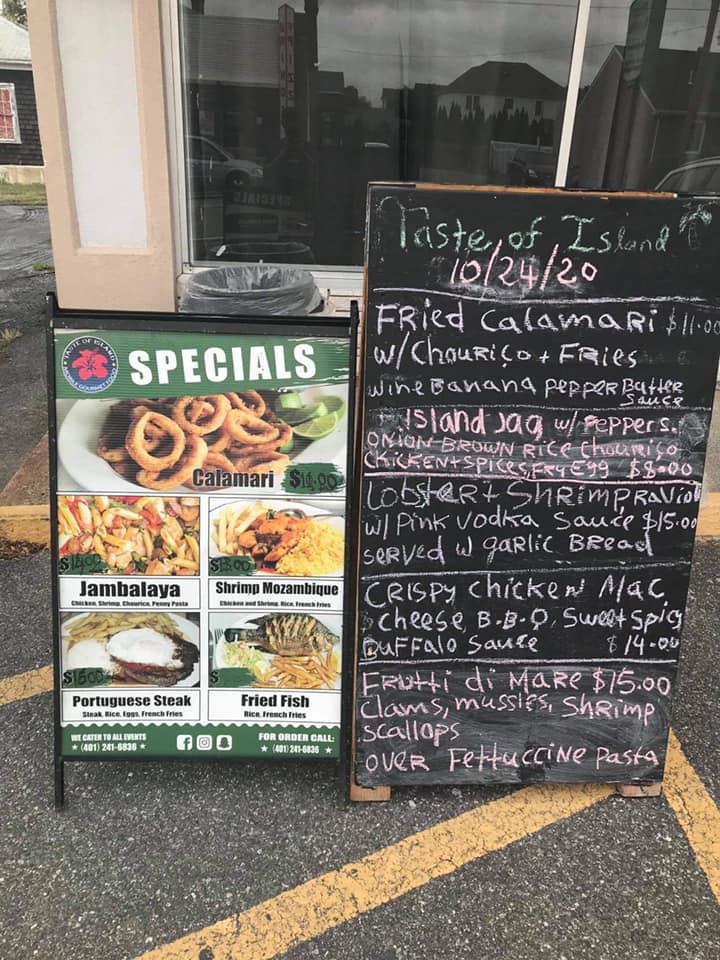 TASTE OF ISLAND
SPECIALS
Calamari
Jambalaya
Chicken, Shrimp, Chourico, Penny Pasta
Shrimp Mozambique
Chicken and Shrimp, Rice, French Fries
$15.00
Portuguese Steak
Steak, Rice, Eggs, French Fries
Fried Fish
Rice, French Fries
WE CATER TO ALL EVENTS
(401) 241-6836
FOR ORDER CALL:
(401) 241-6836
Taste of Island
10/24/20
FRied CalamaRi $11.00
w/ChouRiço + FRies
wine Banana pepper Butter
Sauce
Island Jag w/ Peppers.
ONION BROWN RICE Chouriço
CHICKEN+SPICES, FRY Egg $8.00
LobsteR + ShRimp Raviol
w/ Pink Vodka Sauce $15.00
seRved w gaRlic BRead
CRISPY chicken Mac
cheese, B-B-Q, Sweet Spicy
BUFFalo Sauce $14.00
FRutti di MaRe $15.00
Clams, mussles, ShRimp
scallops
oveR Fettuccine Pasta